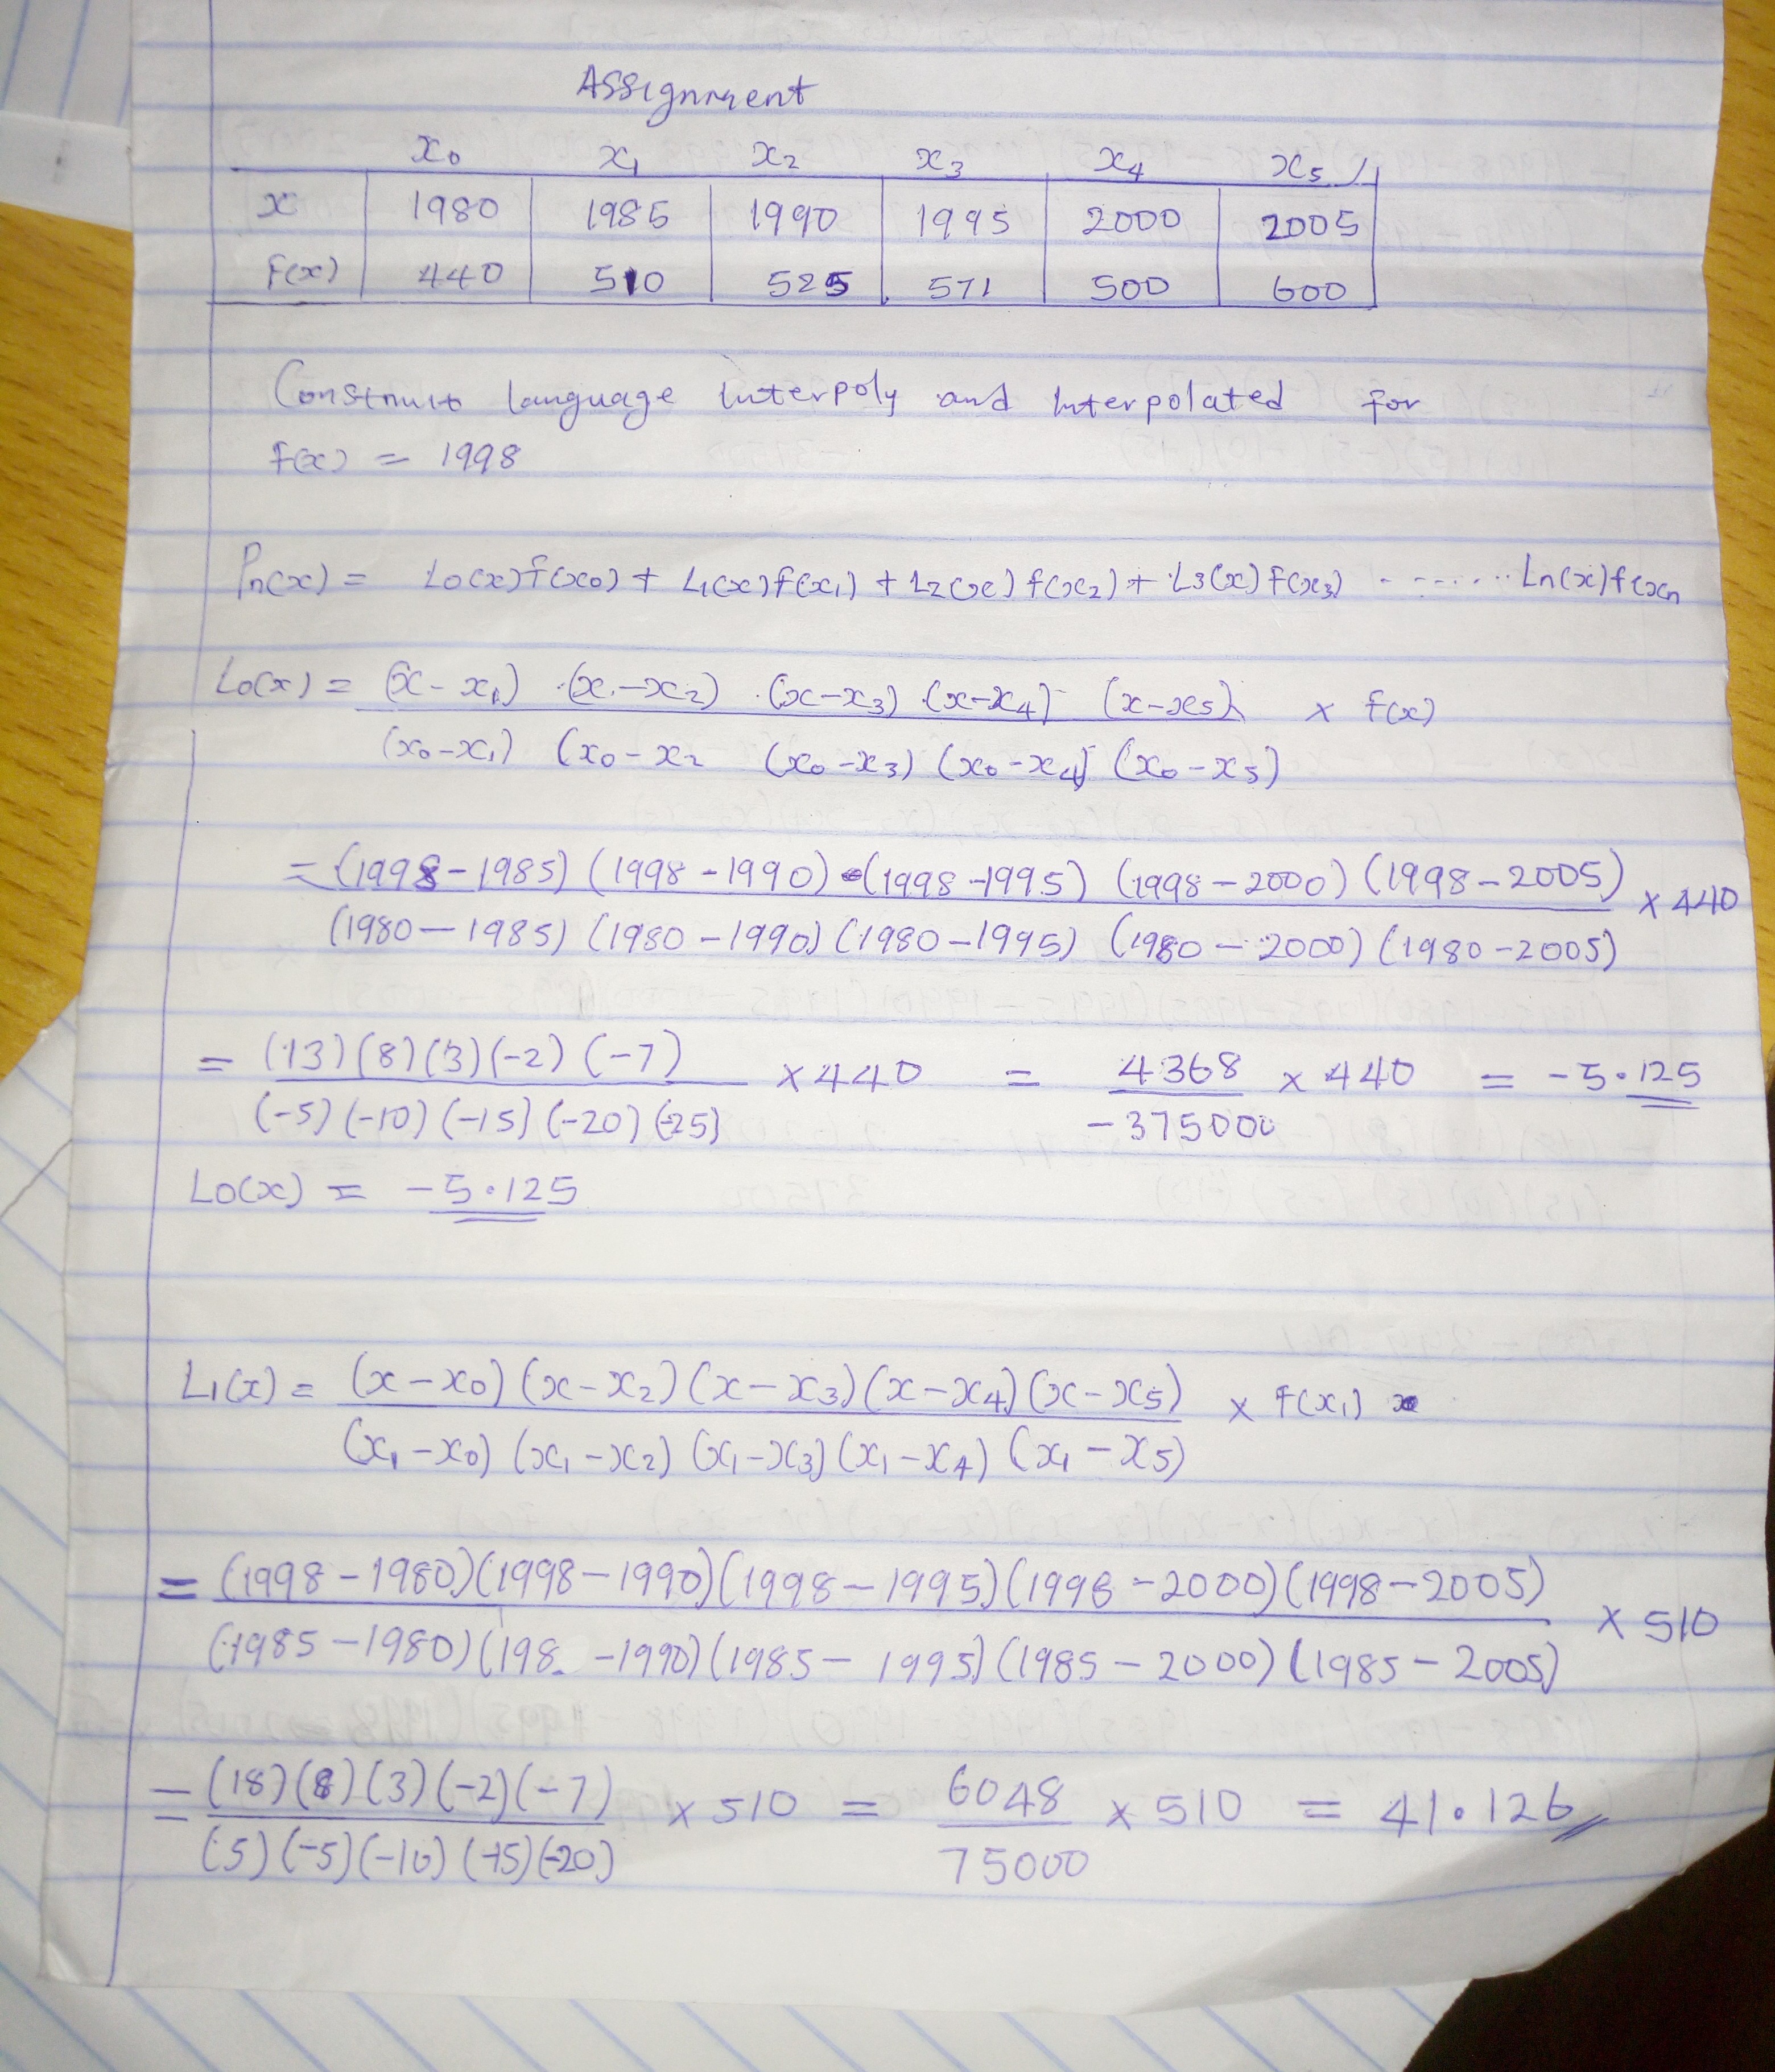 Assignment
x0 x1 x2 x3 x4 x5
x 1980 1985 1990 1995 2000 2005
f(x) 440 510 525 571 500 600
Construct language interpoly and interpolated for
f(x) = 1998
Pn(x) = L0(x)f(x0) + L1(x)f(x1) + L2(x)f(x2) + L3(x)f(x3) ........ Ln(x)f(xn
L0(x) = (x-x1) · (x-x2) · (x-x3) · (x-x4) (x-x5) × f(x)
(x0-x1) (x0-x2 (x0-x3) (x0-x4) (x0-x5)
= (1998-1985) (1998-1990) (1998-1995) (1998-2000) (1998-2005) × 440
(1980-1985) (1980-1990) (1980-1995) (1980-2000) (1980-2005)
= (13)(8)(3)(-2)(-7) × 440 = 4368 × 440 = -5.125
(-5)(-10)(-15)(-20)(-25) -375000
L0(x) = -5.125
L1(x) = (x-x0)(x-x2)(x-x3)(x-x4)(x-x5) × f(x1)
(x1-x0)(x1-x2)(x1-x3)(x1-x4)(x1-x5)
= (1998-1980)(1998-1990)(1998-1995)(1998-2000)(1998-2005) × 510
(1985-1980)(198 -1990)(1985-1995)(1985-2000)(1985-2005)
= (18)(8)(3)(-2)(-7) × 510 = 6048 × 510 = 41.126
(5)(-5)(-10)(-15)(-20) 75000